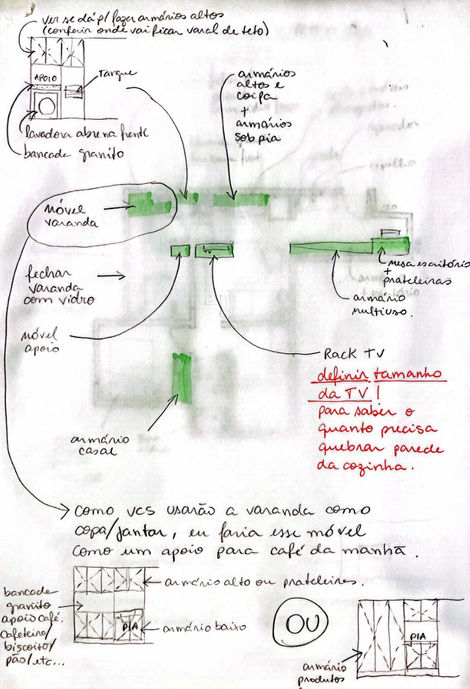 ver se dá p/ fazer armários altos
(conferir onde vai ficar varal de teto)
APOIO
Tanque
lavadora abre na frente
bancada granito
armários
altos e
coifa
+
armários
sob pia
móvel
varanda
mesa escritório
+
prateleiras
armário
multiuso.
fechar
varanda
com vidro
móvel
apoio
Rack TV
definir tamanho
da TV!
para saber o
quanto precisa
quebrar parede
da cozinha.
armário
casal
Como vcs usarão a varanda como
copa/jantar, eu faria esse móvel
como um apoio para café da manhã.
armário alto ou prateleiras.
bancada
granito
apoio café.
cafeteira/
biscoito/
pão/etc...
PIA
armário baixo
OU
PIA
armário
produtos